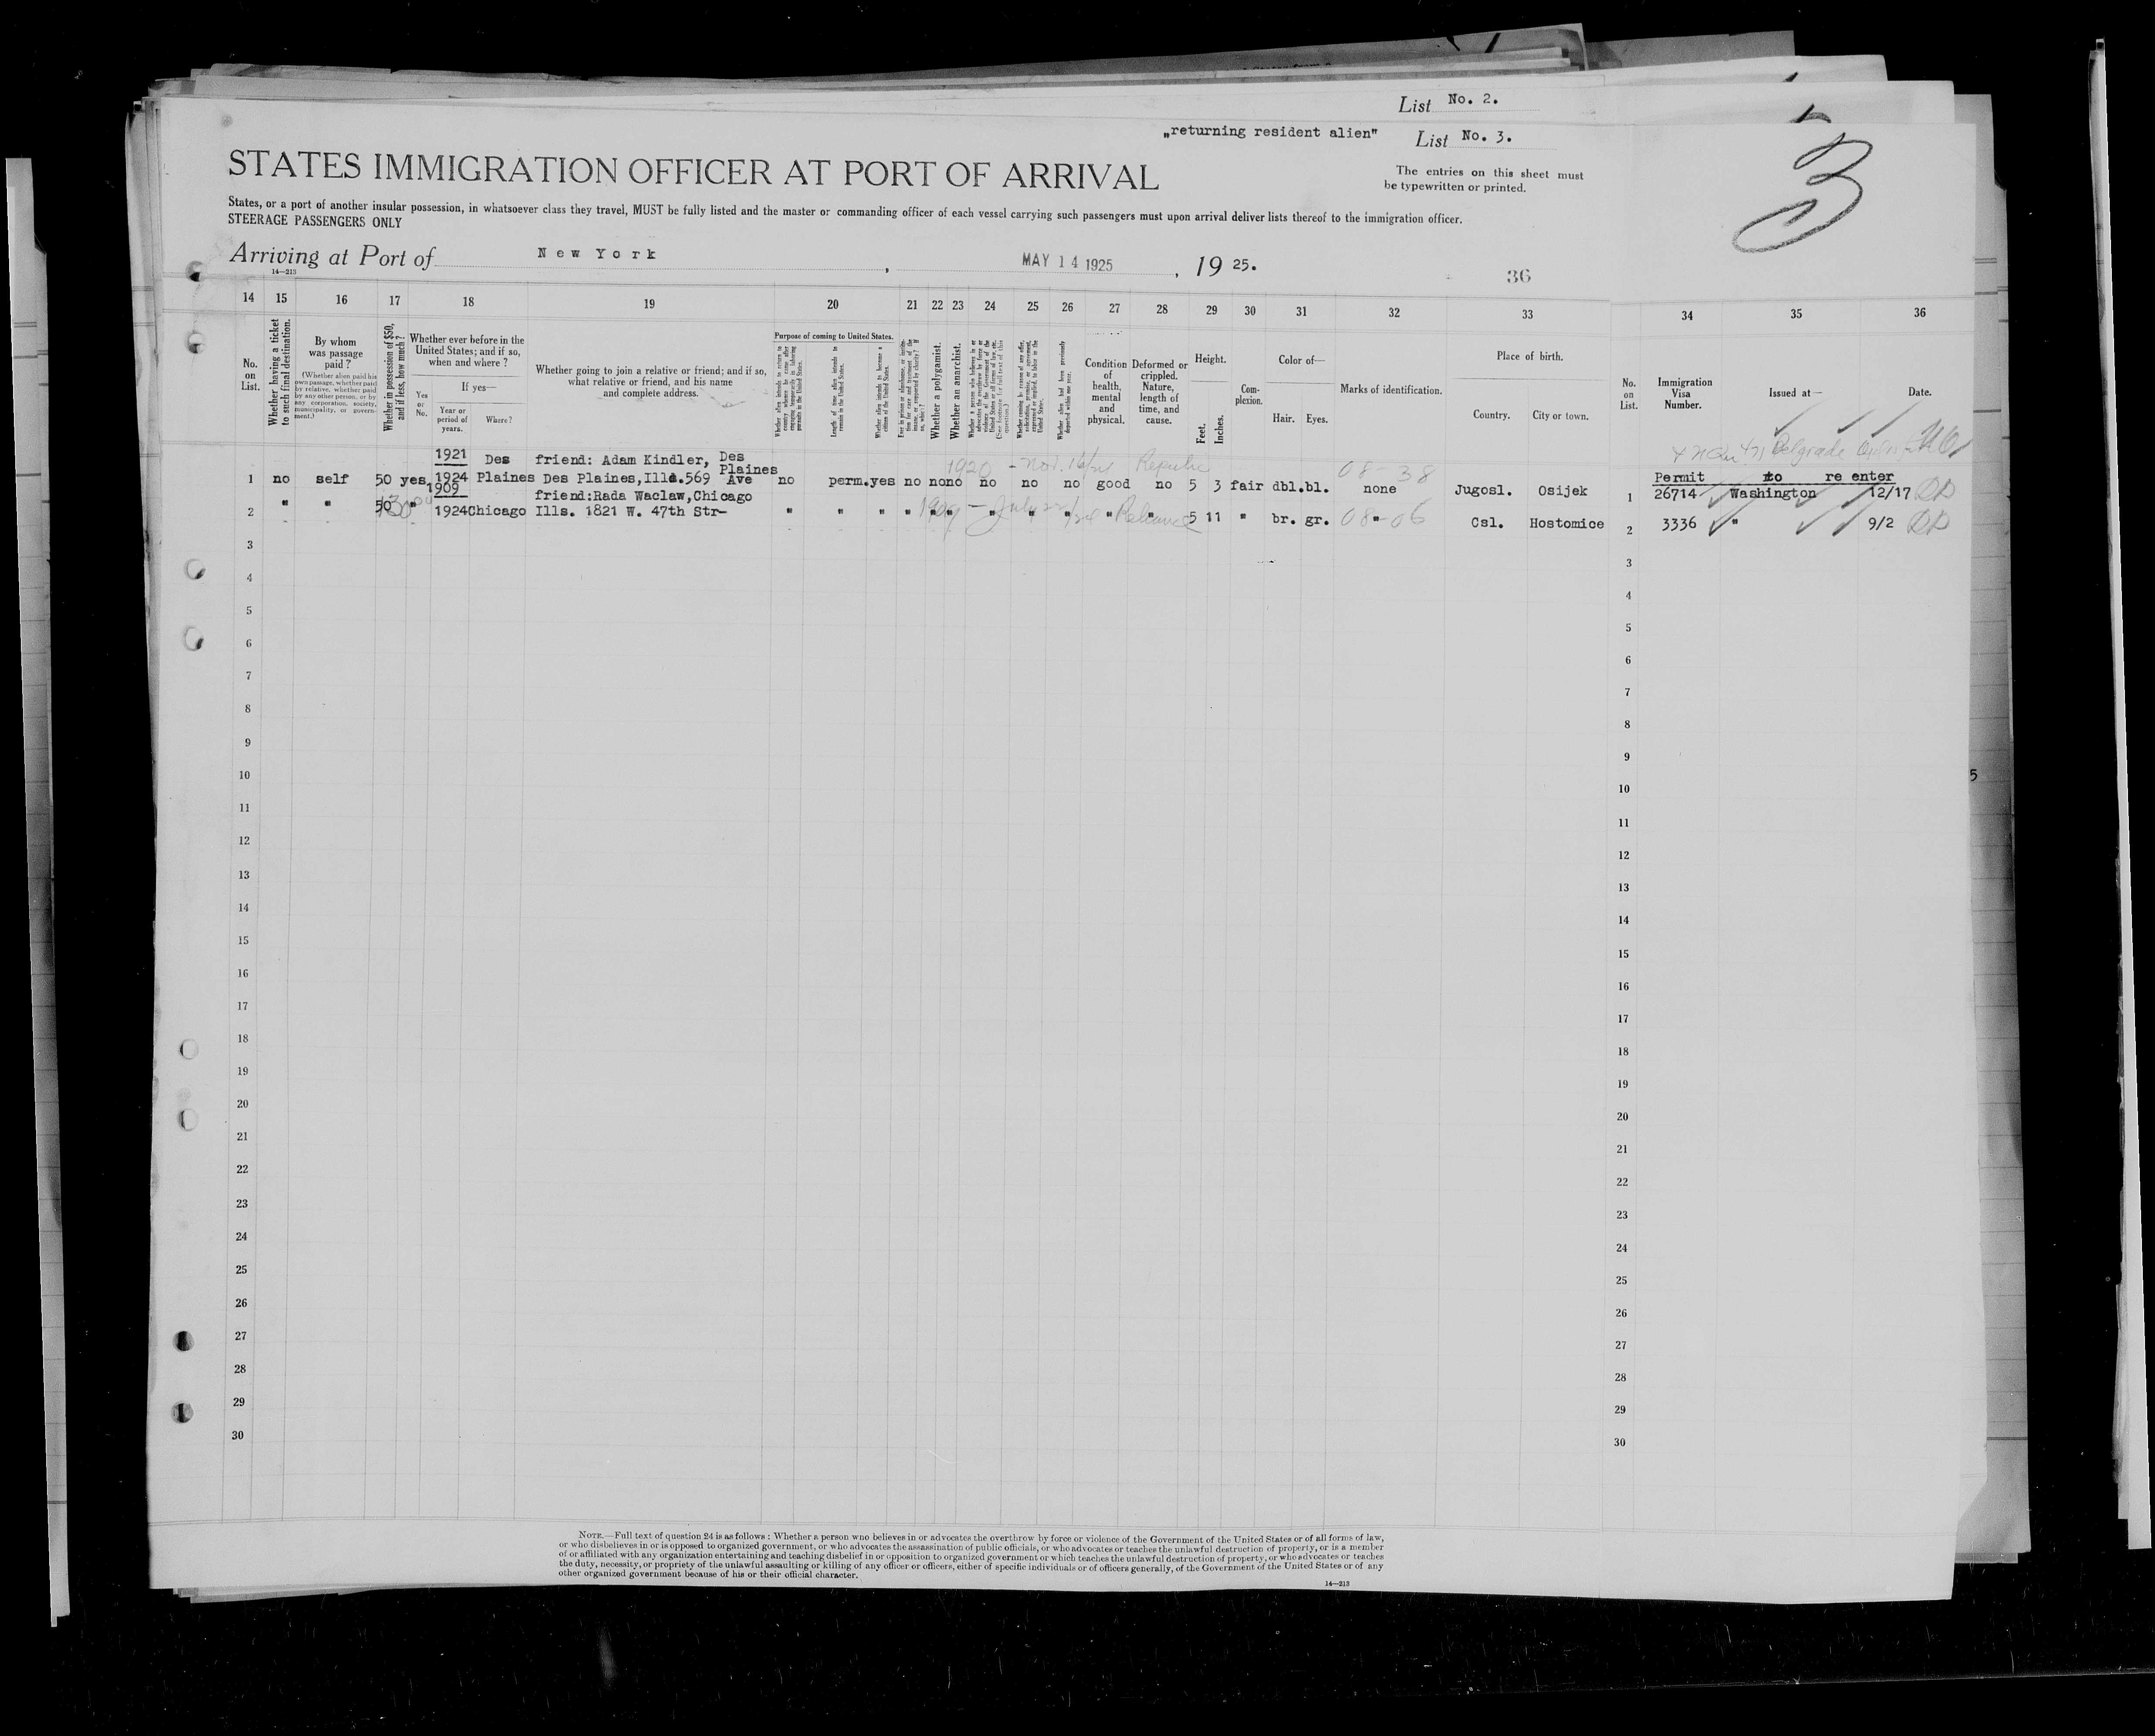 List No. 2.
„returning resident alien" List No. 3.
3
STATES IMMIGRATION OFFICER AT PORT OF ARRIVAL
The entries on this sheet must
be typewritten or printed.
States, or a port of another insular possession, in whatsoever class they travel, MUST be fully listed and the master or commanding officer of each vessel carrying such passengers must upon arrival deliver lists thereof to the immigration officer.
STEERAGE PASSENGERS ONLY
Arriving at Port of New York, MAY 14 1925, 19 25.
14—213
36
14 15 16 17 18 19 20 21 22 23 24 25 26 27 28 29 30 31 32 33 34 35 36
No. on List.
Whether having a ticket to such final destination.
By whom was passage paid?
(Whether alien paid his own passage, whether paid by relative, whether paid by any other person, or by any corporation, society, municipality, or government.)
Whether in possession of $50, and if less, how much?
Whether ever before in the United States; and if so, when and where?
Yes or No.
If yes—
Year or period of years.
Where?
Whether going to join a relative or friend; and if so, what relative or friend, and his name and complete address.
Purpose of coming to United States.
Length of time alien intends to remain in the United States.
Whether alien intends to become a citizen of the United States.
Whether a polygamist.
Whether an anarchist.
Condition of health, mental and physical.
Deformed or crippled. Nature, length of time, and cause.
Height.
Feet.
Inches.
Complexion.
Color of—
Hair. Eyes.
Marks of identification.
Place of birth.
Country. City or town.
No. on List.
Immigration Visa Number.
Issued at—
Date.
Belgrade
1920 - Nov. 16/24 Republic 08-38
1921 Des friend: Adam Kindler, Des Plaines
1 no self 50 yes 1924 Plaines Des Plaines, Ills. 569 Ave no perm. yes no no no no no no good no 5 3 fair dbl. bl. none Jugosl. Osijek
Permit to re enter
1 26714 Washington 12/17
1909 friend:Rada Waclaw,Chicago
2 " " 50 " 1924 Chicago Ills. 1821 W. 47th Str- " " " " " " " " " " " 5 11 " br. gr. " Csl. Hostomice
1909 - July 22/24 Reliance 08-06
2 3336 " 9/2
3 3
4 4
5 5
6 6
7 7
8 8
9 9
10 10
11 11
12 12
13 13
14 14
15 15
16 16
17 17
18 18
19 19
20 20
21 21
22 22
23 23
24 24
25 25
26 26
27 27
28 28
29 29
30 30
NOTE.—Full text of question 24 is as follows: Whether a person who believes in or advocates the overthrow by force or violence of the Government of the United States or of all forms of law,
or who disbelieves in or is opposed to organized government, or who advocates the assassination of public officials, or who advocates or teaches the unlawful destruction of property, or is a member
of or affiliated with any organization entertaining and teaching disbelief in or opposition to organized government or which teaches the unlawful destruction of property, or who advocates or teaches
the duty, necessity, or propriety of the unlawful assaulting or killing of any officer or officers, either of specific individuals or of officers generally, of the Government of the United States or of any
other organized government because of his or their official character.
14—213